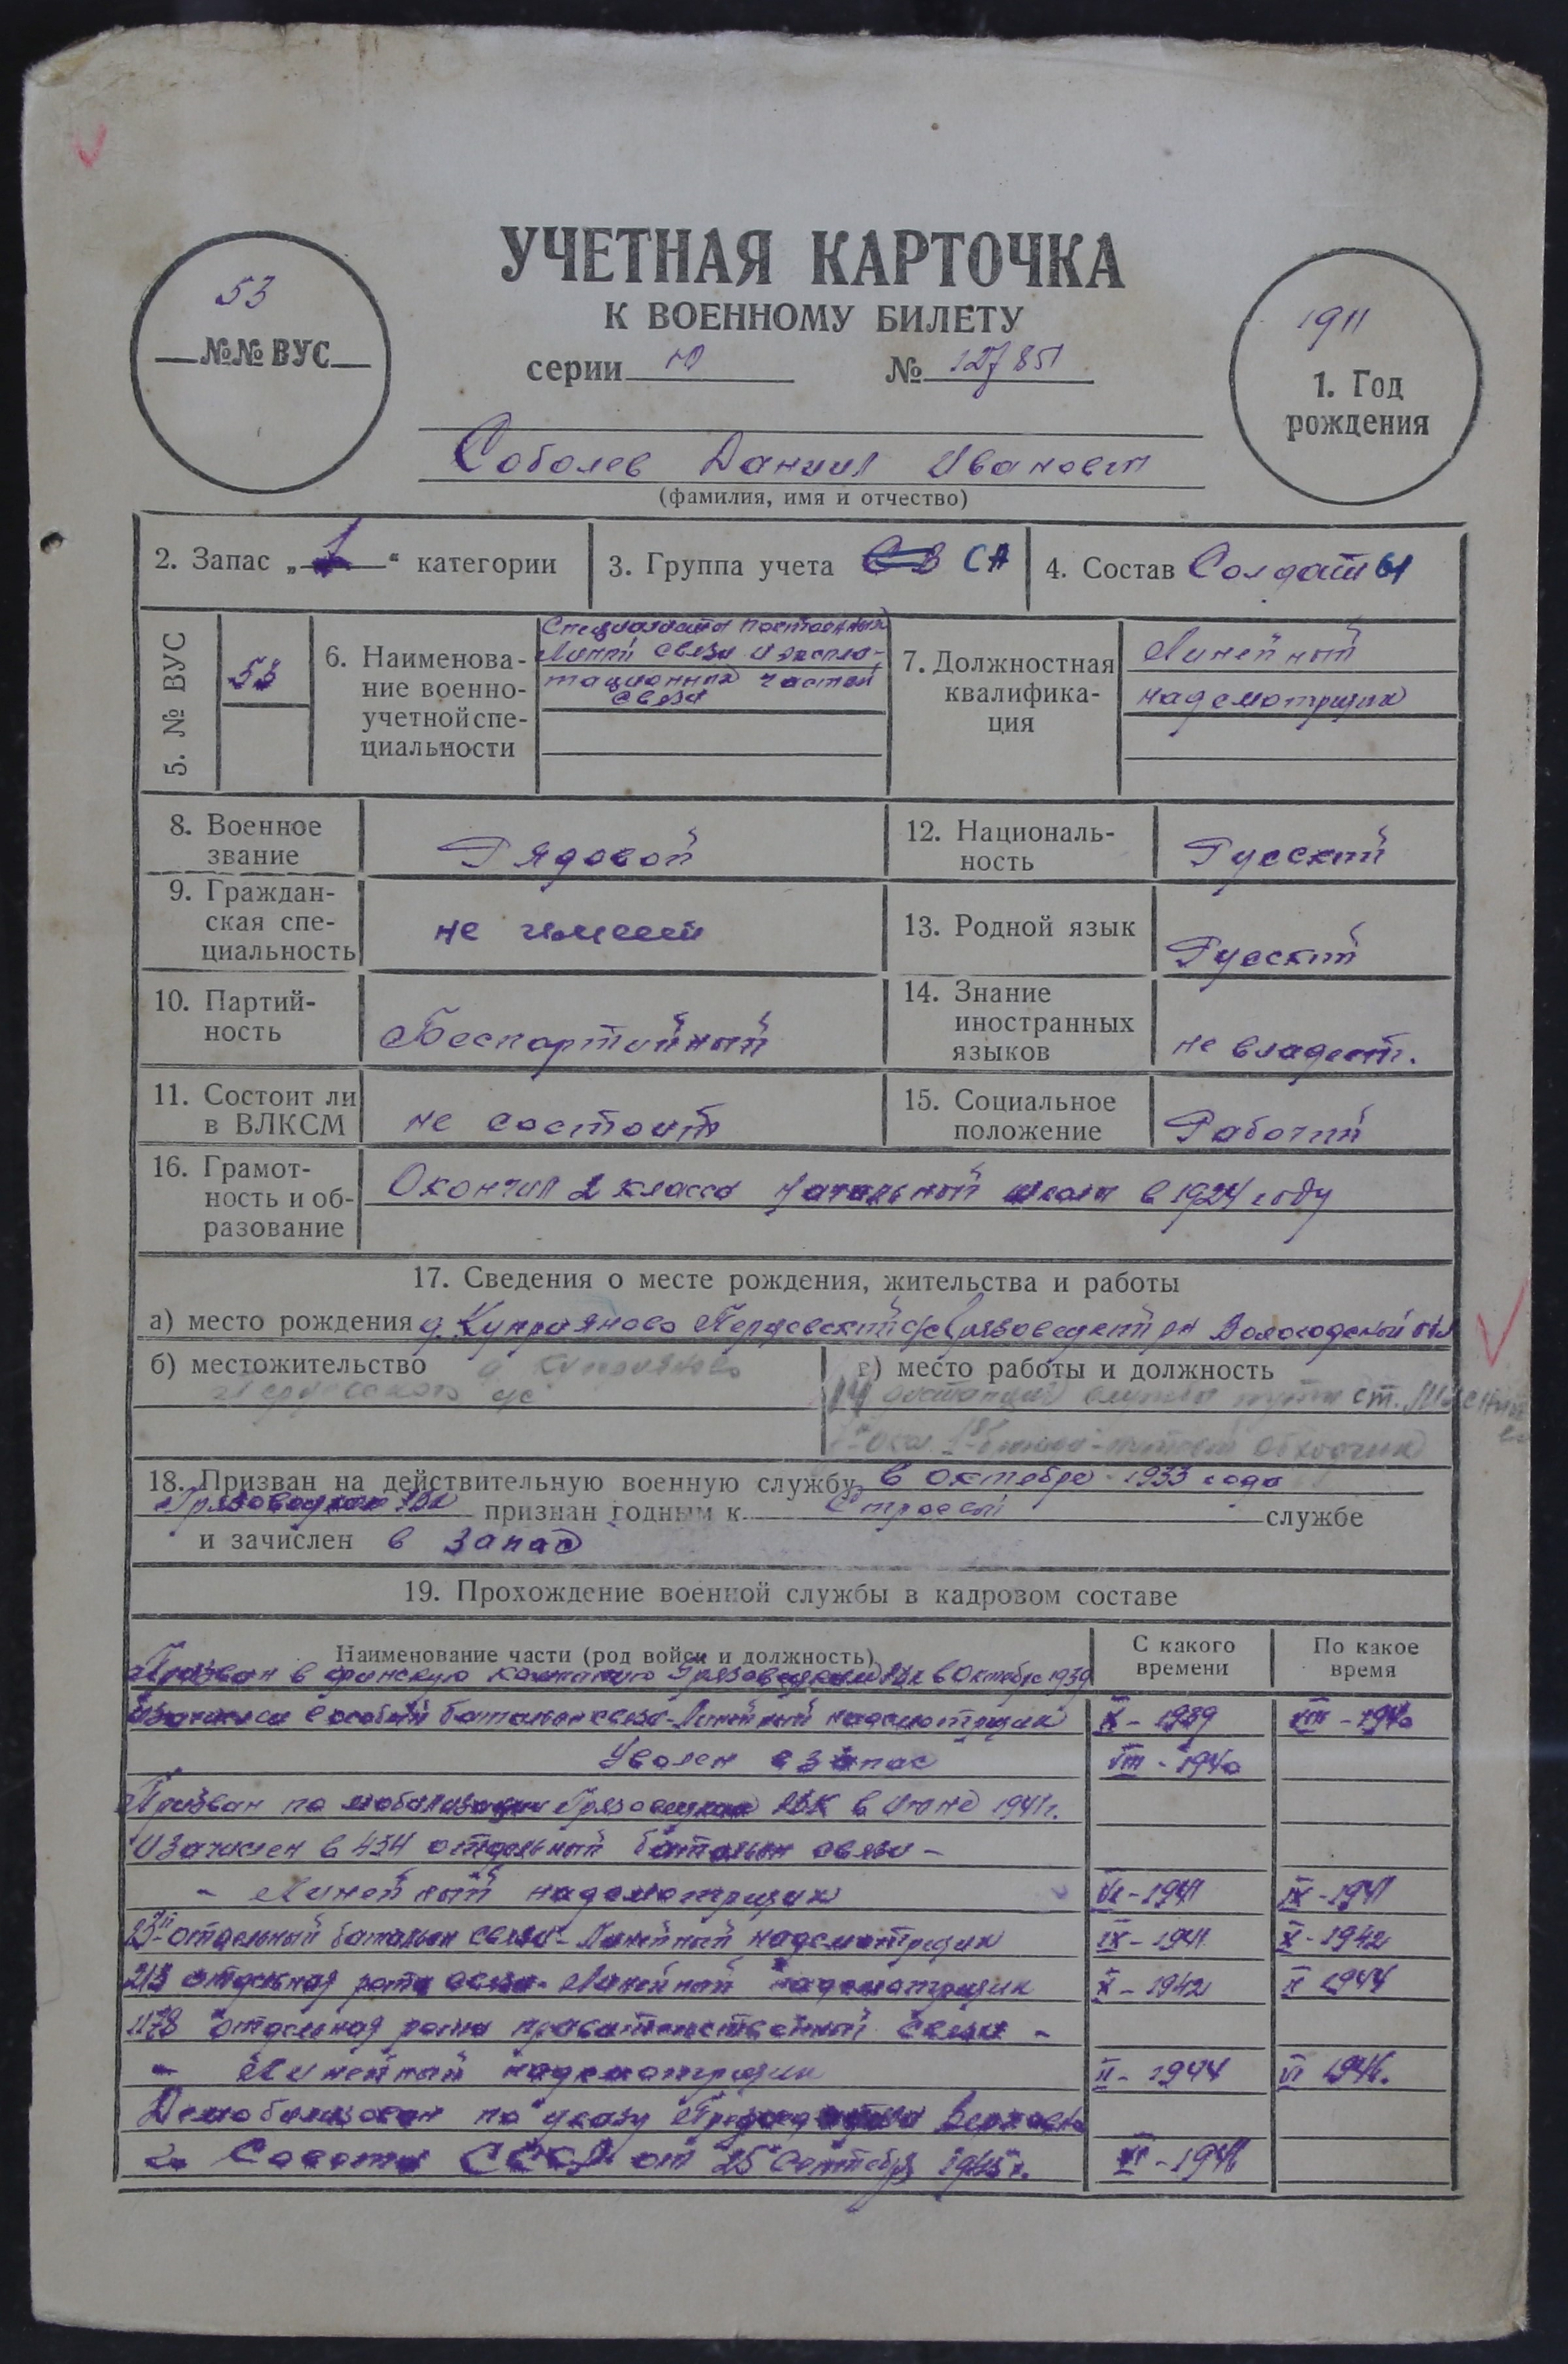 УЧЕТНАЯ КАРТОЧКА
К ВОЕННОМУ БИЛЕТУ
53
№№ ВУС
серии Ю № 127851
1911
1. Год рождения
Соболев Даниил Иванович
(фамилия, имя и отчество)
2. Запас „1“ категории
3. Группа учета СА
4. Состав Солдаты
5. № ВУС
53
6. Наименова-
ние военно-
учетной спе-
циальности
Специалисты постоянных
линий связи и эксплоа-
тационных частей
связи
7. Должностная
квалифика-
ция
Линейный
надсмотрщик
8. Военное
звание
Рядовой
12. Националь-
ность
Русский
9. Граждан-
ская спе-
циальность
не имеет
13. Родной язык
Русский
10. Партий-
ность
Беспартийный
14. Знание
иностранных
языков
не владеет.
11. Состоит ли
в ВЛКСМ
не состоит
15. Социальное
положение
Рабочий
16. Грамот-
ность и об-
разование
Окончил 2 класса начальной школы в 1924 году
17. Сведения о месте рождения, жительства и работы
а) место рождения д. Куприяново Перцевский с/с Грязовецкий рн Вологодской обл
б) местожительство д. Куприяново
Перцевского с/с
в) место работы и должность
14 дистанция службы пути ст.
путевой обходчик
18. Призван на действительную военную службу в октябре 1933 года
Грязовецким РВК признан годным к строевой службе
и зачислен в запас
19. Прохождение военной службы в кадровом составе
Наименование части (род войск и должность)
С какого
времени
По какое
время
Призван в финскую кампанию Грязовецким РВК в октябре 1939
и зачислен в особый батальон связи - Линейный надсмотрщик X - 1939 VIII - 1940
Уволен в запас VIII - 1940
Призван по мобилизации Грязовецким РВК в Июне 1941 г.
и зачислен в 434 отдельный батальон связи -
- Линейный надсмотрщик VI - 1941 IX - 1941
23й отдельный батальон связи - Линейный надсмотрщик IX - 1941 X - 1942
213 отдельная рота связи - Линейный надсмотрщик X - 1942 II 1944
1178 отдельная рота правительственной связи -
- Линейный надсмотрщик II - 1944 VI 1946.
Демобилизован по указу Президиума Верховно
го Совета СССР от 25 Сентября 1945 г. VI - 1946